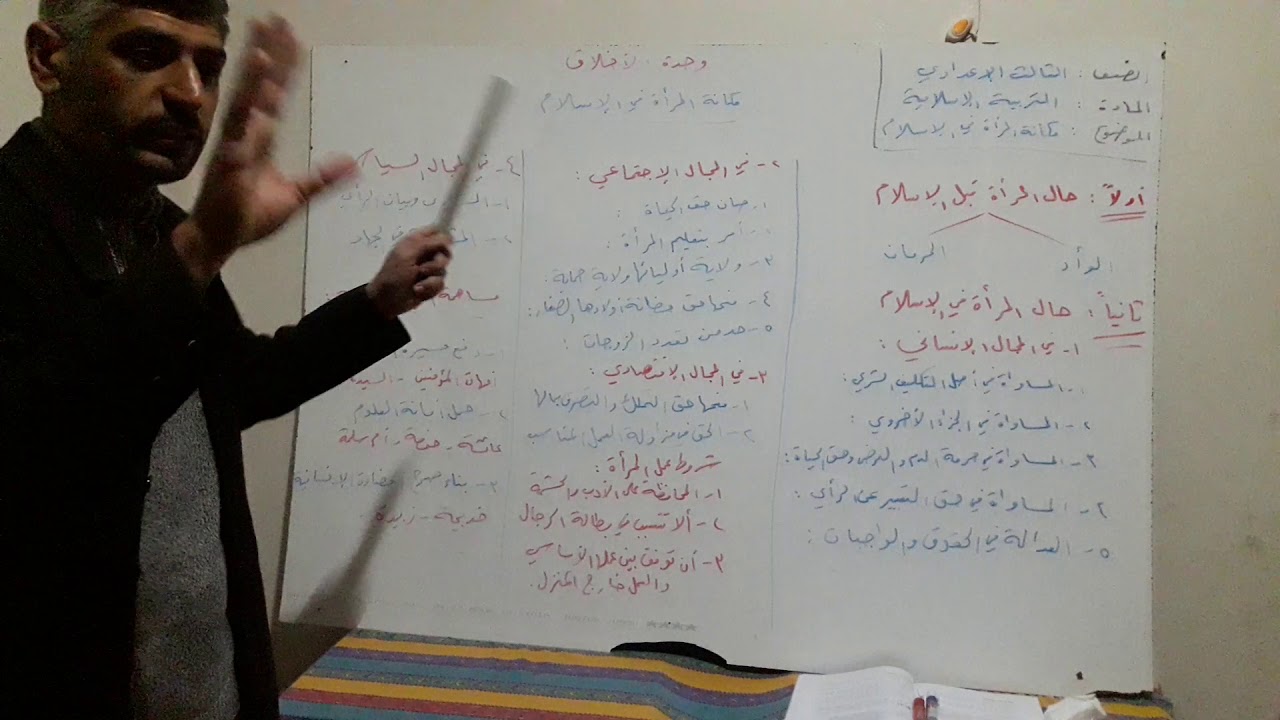 وحدة الأخلاق
مكانة المرأة في الإسلام
الصف : الثالث الاعدادي
المادة : التربية الإسلامية
الموضوع : مكانة المرأة في الاسلام
أولاً : حال المرأة قبل الإسلام
الوأد الحرمان
ثانياً : حال المرأة في الإسلام
١- في المجال الإنساني :
١- المساواة في أصل التكليف الشرعي :
٢- المساواة في الجزاء الأخروي :
٣- المساواة في حرمة الدم والعرض وحق الحياة :
٤- المساواة في حق التعبير عن الرأي :
٥- العدالة في الحقوق والواجبات :
٢- في المجال الإجتماعي :
١- صان حق الحياة :
٢- أمر بتعليم المرأة :
٣- ولاية أوليائها ولاية حماية :
٤- منحها حق حضانة أولادها الصغار :
٥- حد من تعدد الزوجات :
٣- في المجال الاقتصادي :
١- منحها حق التملك والتصرف بمالها
٢- الحق في مزاولة العمل المناسب
شروط عمل المرأة :
١- المحافظة على الأدب والحشمة
٢- ألا تتسبب في بطالة الرجال
٣- أن توفق بين عملها الأساسي
والعمل خارج المنزل .
٤- في المجال
وبيان الرأي
أمهات المؤمنين - السيدة
٢- حمل أمانة العلوم
عائشة - حفصة - أم سلمة
٣- بناء الحضارة الإنسانية
خديجة - زبيدة